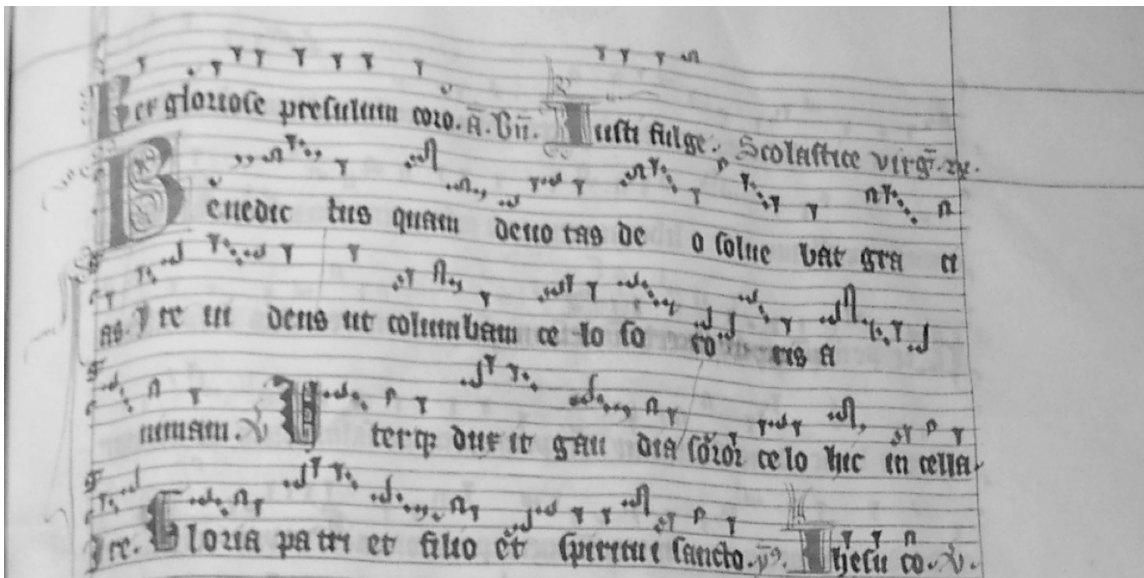 Per gloriose presulum coro. a. Vn. Iusti fulge. Scolastice virg.
Benedic tus quam deuo tas de o solue bat gra ci
as. I re in deus ut columbam ce lo so ro ris a
nimam. V Uterq; dux it gau dia soror ce lo hic in cella
I re. Gloria pa tri et filio et spiritui sancto. p⁹. Ihesu co. V.